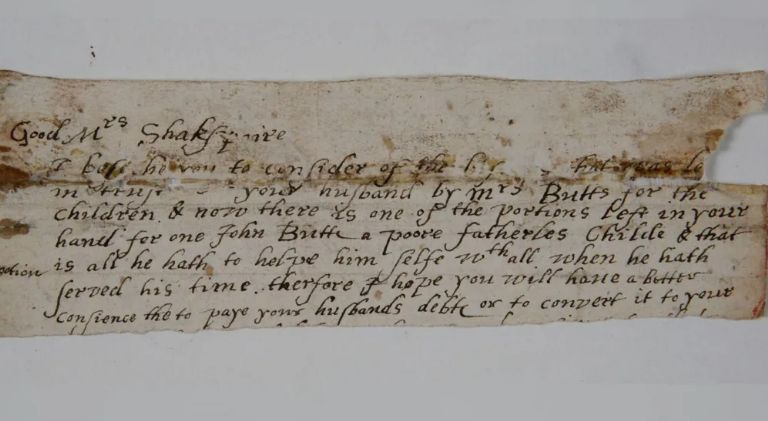 Good Mrs Shakspaire
I bese he you to consider of the that was le
in trust your husband by mrs Butts for the
Children & now there is one of the portions left in your
hand for one John Butte a poore fatherles Childe & that
is all he hath to helpe him selfe wth all when he hath
served his time therfore I hope you will have a better
Consience the to paye your husbands debte or to convert it to your